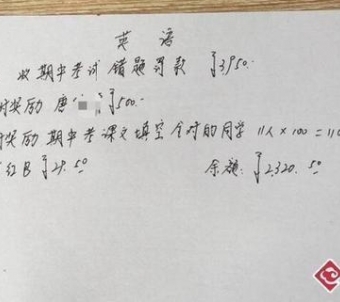 英语
收期中考试错题罚款 ¥3950.
奖励 唐 ¥500.
奖励 期中考课文填空全对的同学 11人×100=110
红B ¥29.50 余额: ¥2,320.50